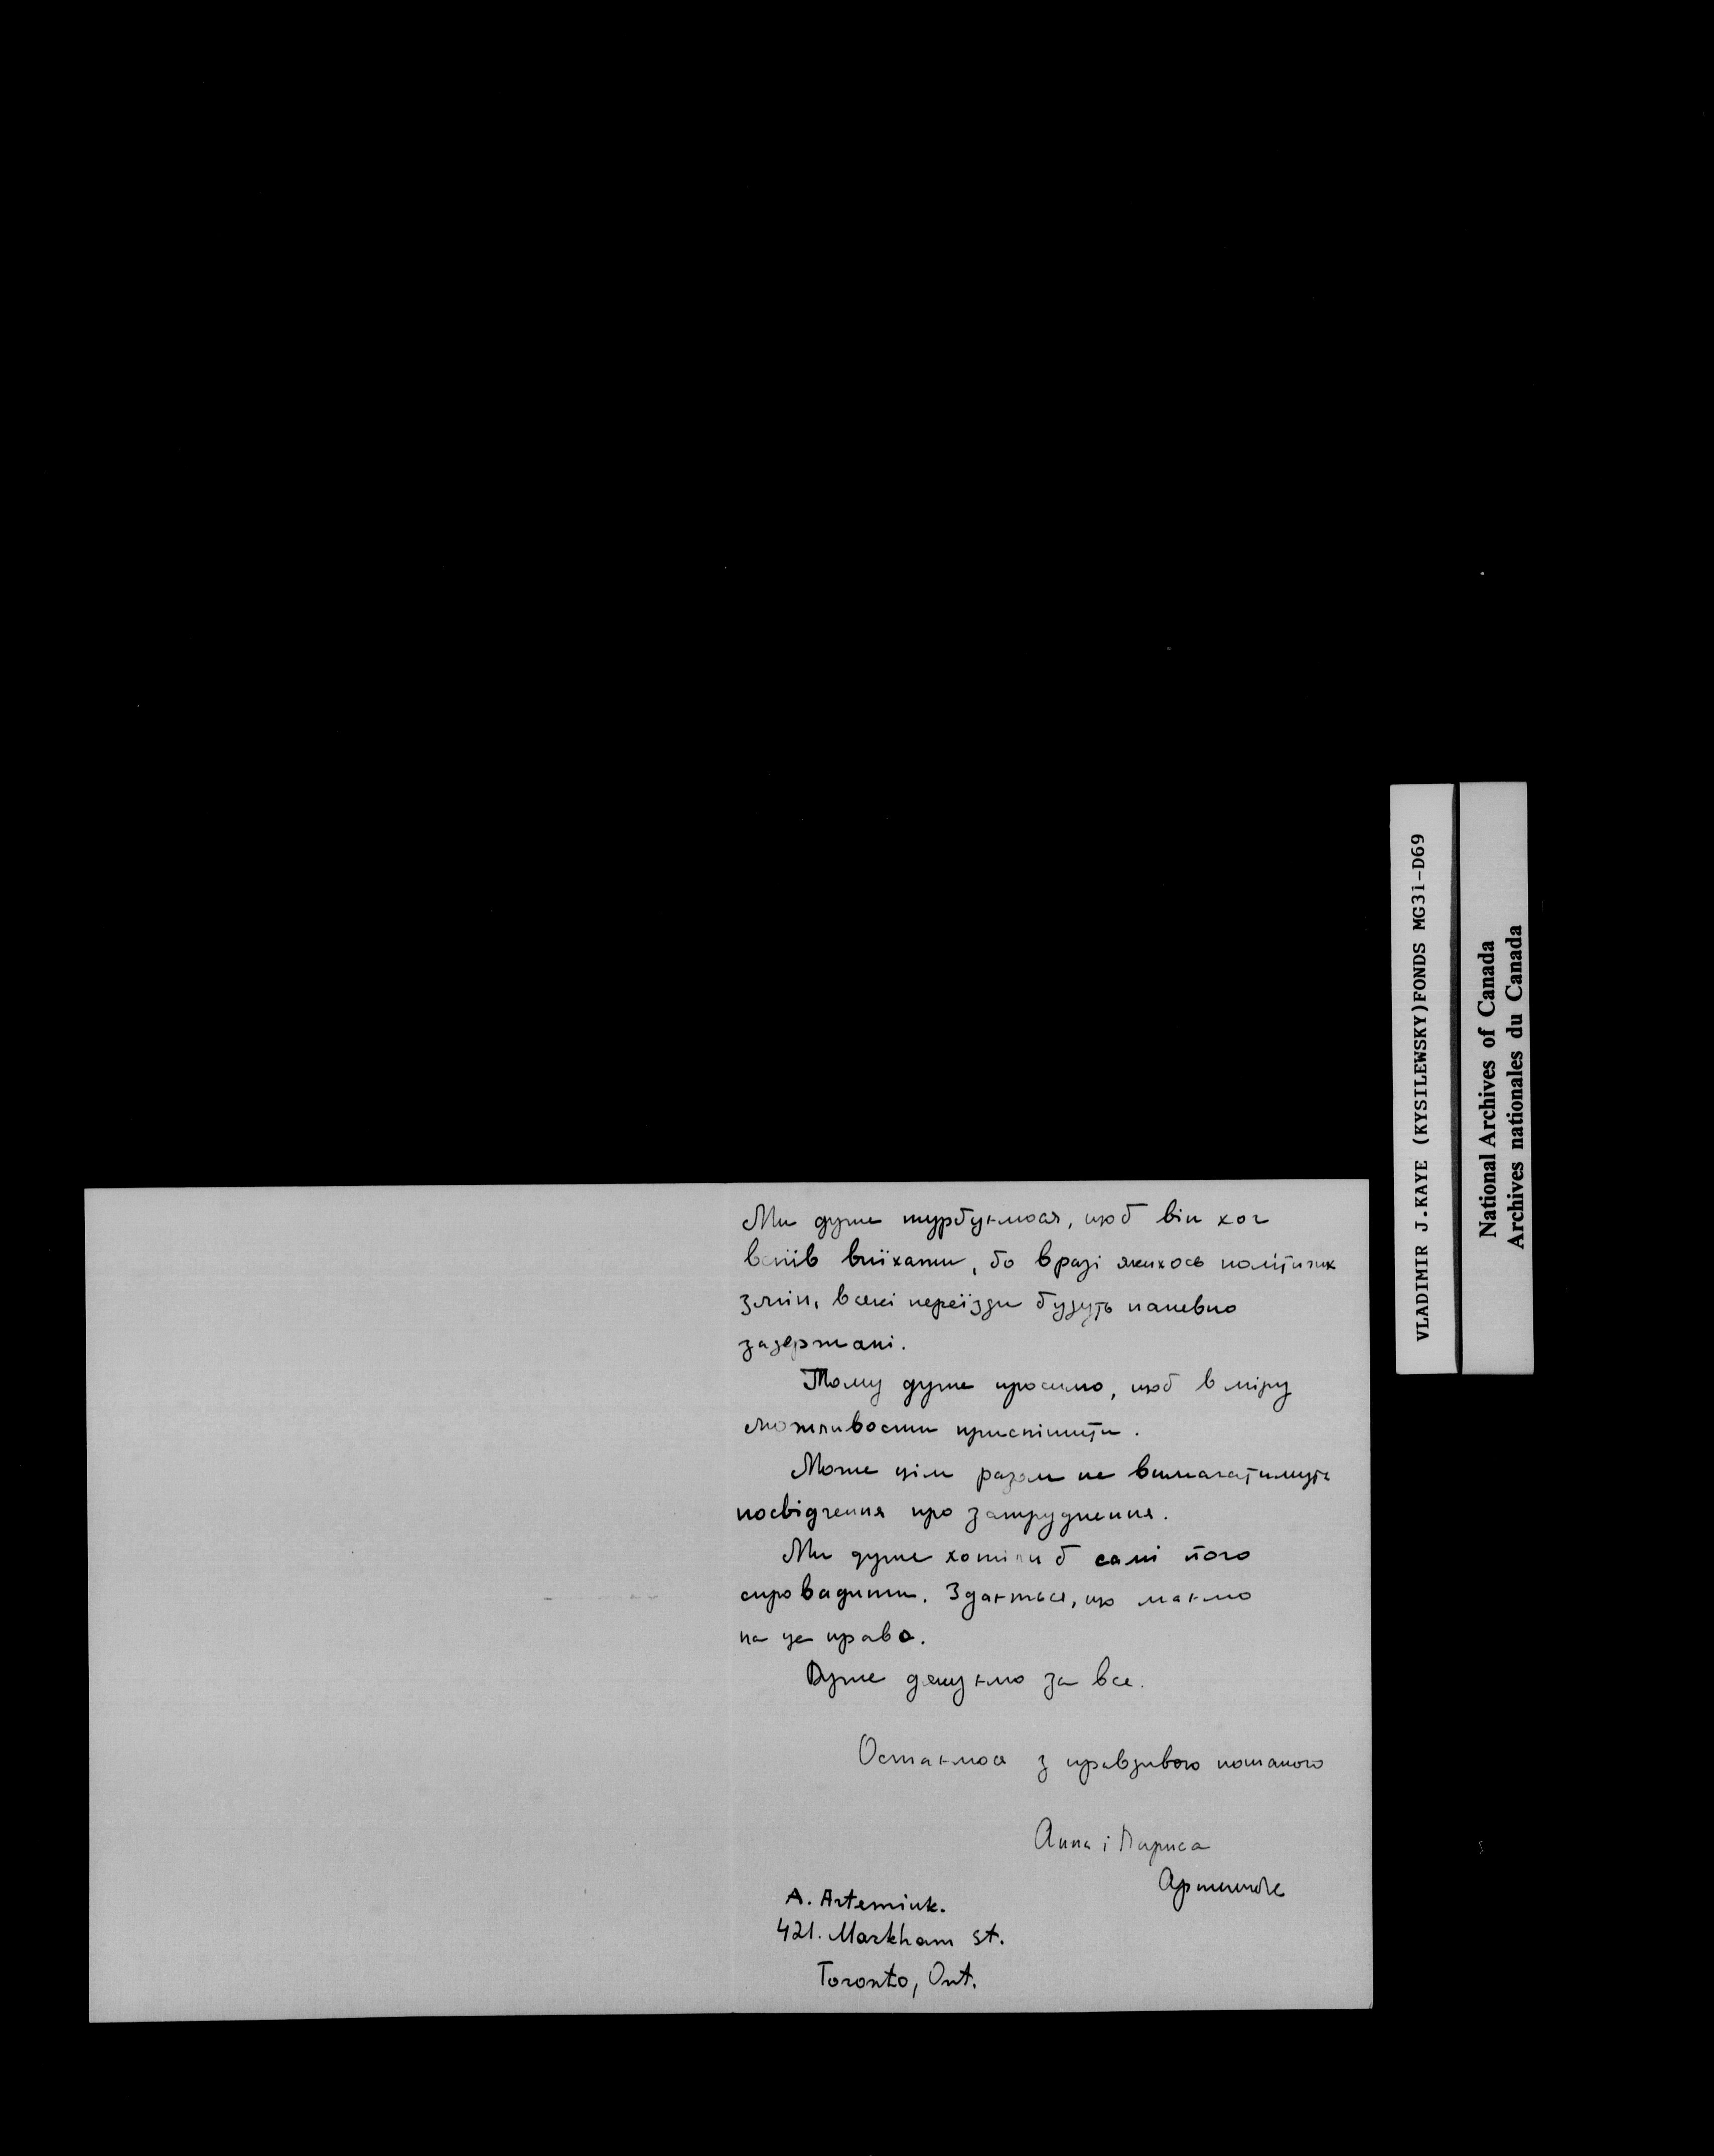 Ми дуже турбуємося, щоб він хоч
вспів виїхати, бо в разі якихось політичних
змін, всякі переїзди будуть напевно
задержані.
Тому дуже просимо, щоб в міру
можливости приспішити.
Може цім разом не вимагатимуть
посвідчення про затруднення.
Ми дуже хотіли б самі його
спровадити. Здається, що маємо
на це право.
Дуже дякуємо за все.
Остаємося з правдивою пошаною
Анна і Лариса
A. Artemiuk.
421. Markham St.
Toronto, Ont.
VLADIMIR J.KAYE (KYSILEWSKY)FONDS MG31-D69
National Archives of Canada
Archives nationales du Canada